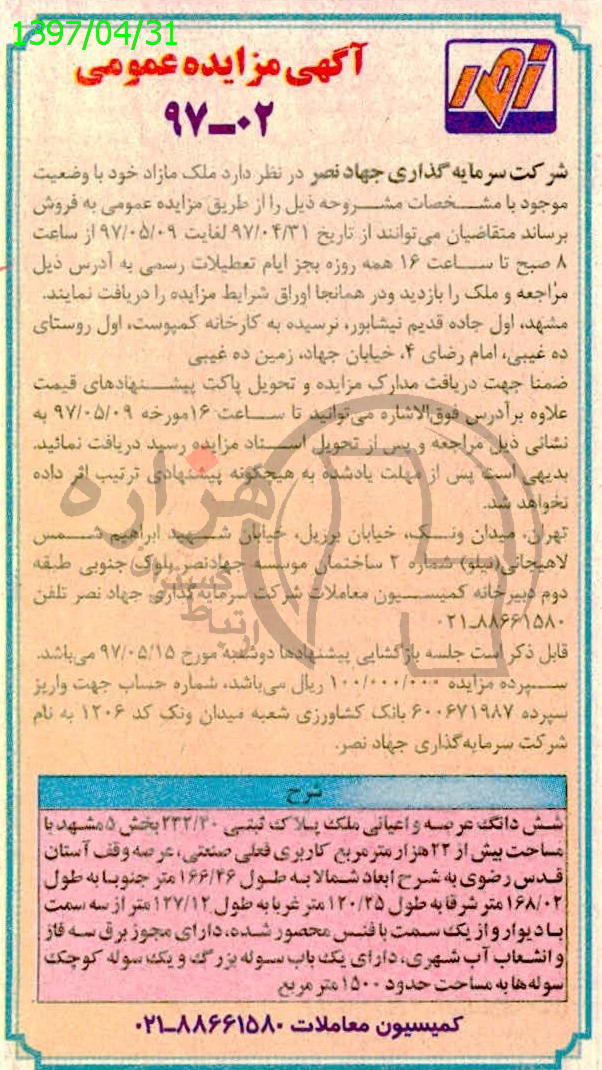 1397/04/31
نصر
آگهی مزایده عمومی
۹۷-۰۲
شرکت سرمایه گذاری جهاد نصر در نظر دارد ملک مازاد خود با وضعیت
موجود با مشخصات مشروحه ذیل را از طریق مزایده عمومی به فروش
برساند متقاضیان می‌توانند از تاریخ ۹۷/۰۴/۳۱ لغایت ۹۷/۰۵/۰۹ از ساعت
۸ صبح تا ساعت ۱۶ همه روزه بجز ایام تعطیلات رسمی به آدرس ذیل
مراجعه و ملک را بازدید ودر همانجا اوراق شرایط مزایده را دریافت نمایند.
مشهد، اول جاده قدیم نیشابور، نرسیده به کارخانه کمپوست، اول روستای
ده غیبی، امام رضای ۴، خیابان جهاد، زمین ده غیبی
ضمنا جهت دریافت مدارک مزایده و تحویل پاکت پیشنهادهای قیمت
علاوه برآدرس فوق‌الاشاره می‌توانید تا ساعت ۱۶مورخه ۹۷/۰۵/۰۹ به
نشانی ذیل مراجعه و پس از تحویل اسناد مزایده رسید دریافت نمائید.
بدیهی است پس از مهلت یادشده به هیچگونه پیشنهادی ترتیب اثر داده
نخواهد شد.
تهران، میدان ونک، خیابان برزیل، خیابان شهید ابراهیم شمس
لاهیجانی(نیلو) شماره ۲ ساختمان موسسه جهادنصر بلوک جنوبی طبقه
دوم دبیرخانه کمیسیون معاملات شرکت سرمایه گذاری جهاد نصر تلفن
۰۲۱-۸۸۶۶۱۵۸۰
قابل ذکر است جلسه بازگشایی پیشنهادها دوشنبه مورخ ۹۷/۰۵/۱۵ می‌باشد.
سپرده مزایده ۱۰۰/۰۰۰/۰۰۰ ریال می‌باشد، شماره حساب جهت واریز
سپرده ۶۰۰۶۷۱۹۸۷ بانک کشاورزی شعبه میدان ونک کد ۱۲۰۶ به نام
شرکت سرمایه گذاری جهاد نصر.
شرح
شش دانگ عرصه و اعیانی ملک پلاک ثبتی ۲۳۲/۲۰ بخش ۵ مشهد با
مساحت بیش از ۲۲ هزار متر مربع کاربری فعلی صنعتی، عرصه وقف آستان
قدس رضوی به شرح ابعاد شمالا به طول ۱۶۶/۴۶ متر جنوبا به طول
۱۶۸/۰۲ متر شرقا به طول ۱۲۰/۲۵ متر غربا به طول ۱۲۷/۱۲ متر از سه سمت
با دیوار و از یک سمت با فنس محصور شده، دارای مجوز برق سه فاز
و انشعاب آب شهری، دارای یک باب سوله بزرگ و یک سوله کوچک
سوله‌ها به مساحت حدود ۱۵۰۰ متر مربع
کمیسیون معاملات ۰۲۱-۸۸۶۶۱۵۸۰
هزاره
ارتباط